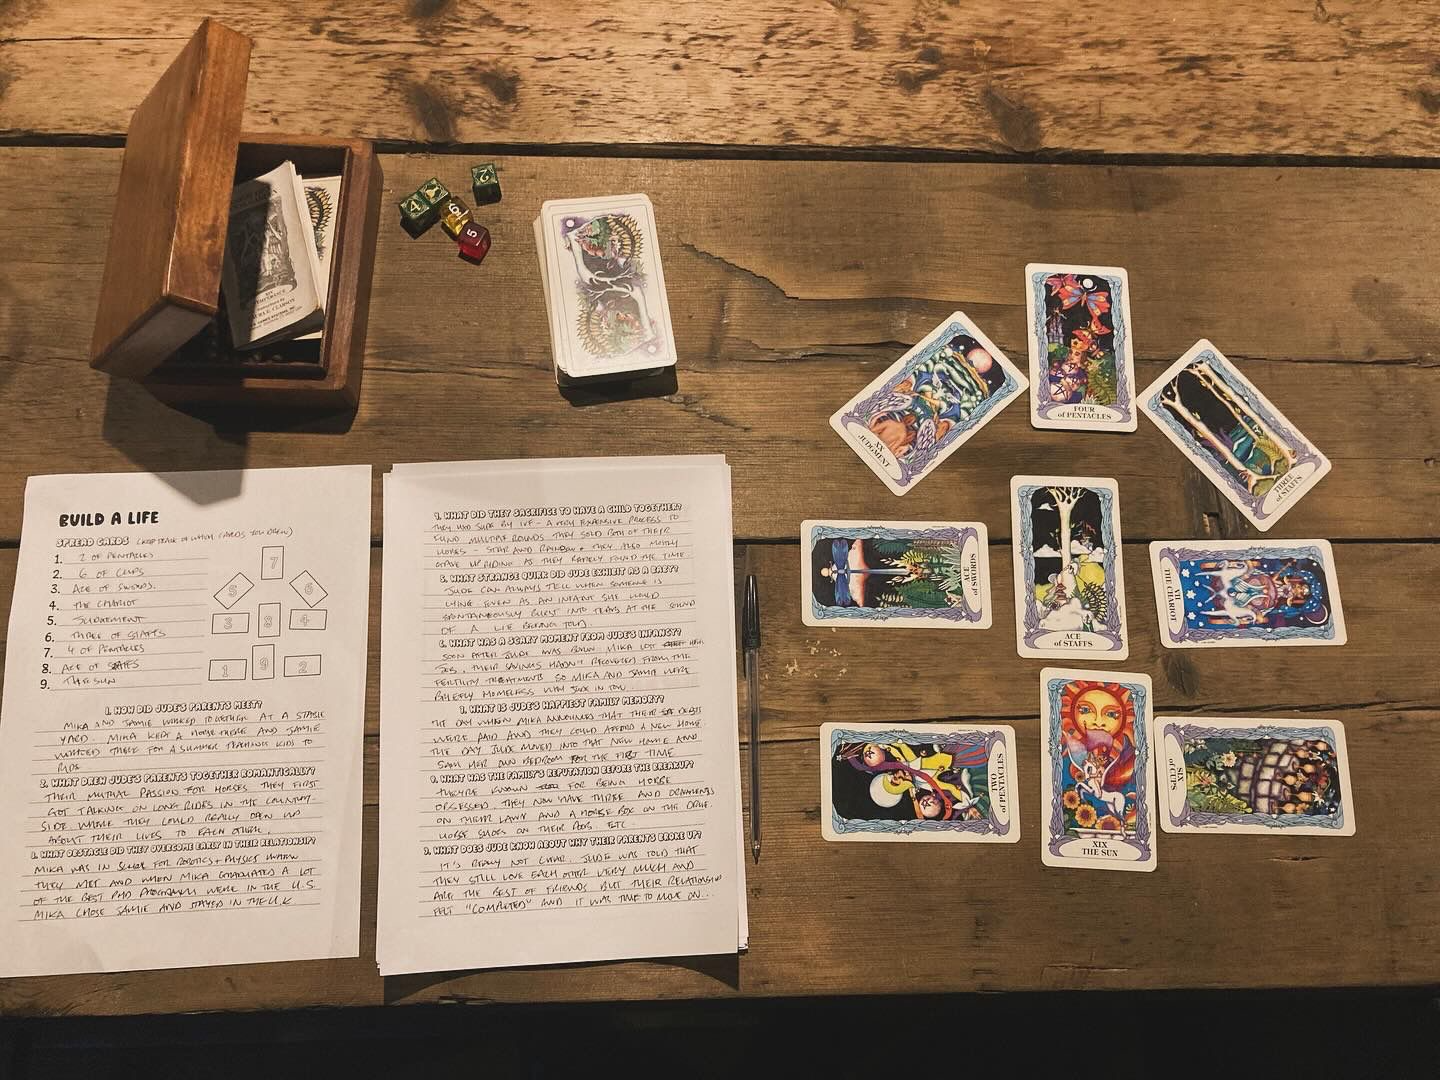 BUILD A LIFE
SPREAD CARDS (KEEP TRACK OF WHICH CARDS YOU DREW)
1. 2 OF PENTACLES
2. 6 OF CUPS
3. ACE OF SWORDS.
4. THE CHARIOT
5. JUDGEMENT
6. THREE OF STAFFS
7. 4 OF PENTACLES
8. ACE OF STAFFS
9. THE SUN
7
5 6
3 8 4
1 9 2
1. HOW DID JUDE'S PARENTS MEET?
MIKA AND JAMIE WORKED TOGETHER AT A STABLE
YARD. MIKA KEPT A HORSE THERE AND JAMIE
WORKED THERE FOR A SUMMER TEACHING KIDS TO
RIDE
2. WHAT DREW JUDE'S PARENTS TOGETHER ROMANTICALLY?
THEIR MUTUAL PASSION FOR HORSES. THEY FIRST
GOT TALKING ON LONG RIDES IN THE COUNTRY-
SIDE WHERE THEY COULD REALLY OPEN UP
ABOUT THEIR LIVES TO EACH OTHER.
3. WHAT OBSTACLE DID THEY OVERCOME EARLY IN THEIR RELATIONSHIP?
MIKA WAS IN SCHOOL FOR ROBOTICS + PHYSICS WHEN
THEY MET AND WHEN MIKA GRADUATED A LOT
OF THE BEST PHD PROGRAMS WERE IN THE U.S.
MIKA CHOSE JAMIE AND STAYED IN THE U.K.
4. WHAT DID THEY SACRIFICE TO HAVE A CHILD TOGETHER?
THEY HAD JUDE BY IVF - A VERY EXPENSIVE PROCESS TO
FUND MULTIPLE ROUNDS THEY SOLD BOTH OF THEIR
HORSES - STAR AND RAINBOW + THEY ALSO MOSTLY
GAVE UP RIDING AS THEY RARELY FOUND THE TIME.
5. WHAT STRANGE QUIRK DID JUDE EXHIBIT AS A BABY?
JUDE CAN ALWAYS TELL WHEN SOMEONE IS
LYING. EVEN AS AN INFANT SHE WOULD
SPONTANEOUSLY BURST INTO TEARS AT THE SOUND
OF A LIE BEING TOLD.
6. WHAT WAS A SCARY MOMENT FROM JUDE'S INFANCY?
SOON AFTER JUDE WAS BORN MIKA LOST HER
JOB. THEIR SAVINGS HADN'T RECOVERED FROM THE
FERTILITY TREATMENTS SO MIKA AND JAMIE WERE
BRIEFLY HOMELESS WITH JUDE IN TOW.
7. WHAT IS JUDE'S HAPPIEST FAMILY MEMORY?
THE DAY WHEN MIKA ANNOUNCED THAT THEIR DEBTS
WERE PAID AND THEY COULD AFFORD A NEW HOME.
THE DAY JUDE MOVED INTO THAT NEW HOME AND
SAW HER OWN BEDROOM FOR THE FIRST TIME
8. WHAT WAS THE FAMILY'S REPUTATION BEFORE THE BREAKUP?
THEY'RE KNOWN FOR BEING HORSE
OBSESSED. THEY NOW HAVE THREE AND ORNAMENTS
ON THEIR LAWN AND A HORSE BOX ON THE DRIVE.
HORSE SHOES ON THEIR DOORS. ETC
9. WHAT DOES JUDE KNOW ABOUT WHY THEIR PARENTS BROKE UP?
IT'S REALLY NOT CLEAR. JUDE WAS TOLD THAT
THEY STILL LOVE EACH OTHER VERY MUCH AND
ARE THE BEST OF FRIENDS BUT THEIR RELATIONSHIP
FELT "COMPLETED" AND IT WAS TIME TO MOVE ON...
XIV
TEMPERANCE
4
6
5
2
FOUR
of PENTACLES
XX
JUDGMENT
THREE
of STAFFS
ACE
of SWORDS
ACE
of STAFFS
VII
THE CHARIOT
TWO
of PENTACLES
XIX
THE SUN
SIX
of CUPS